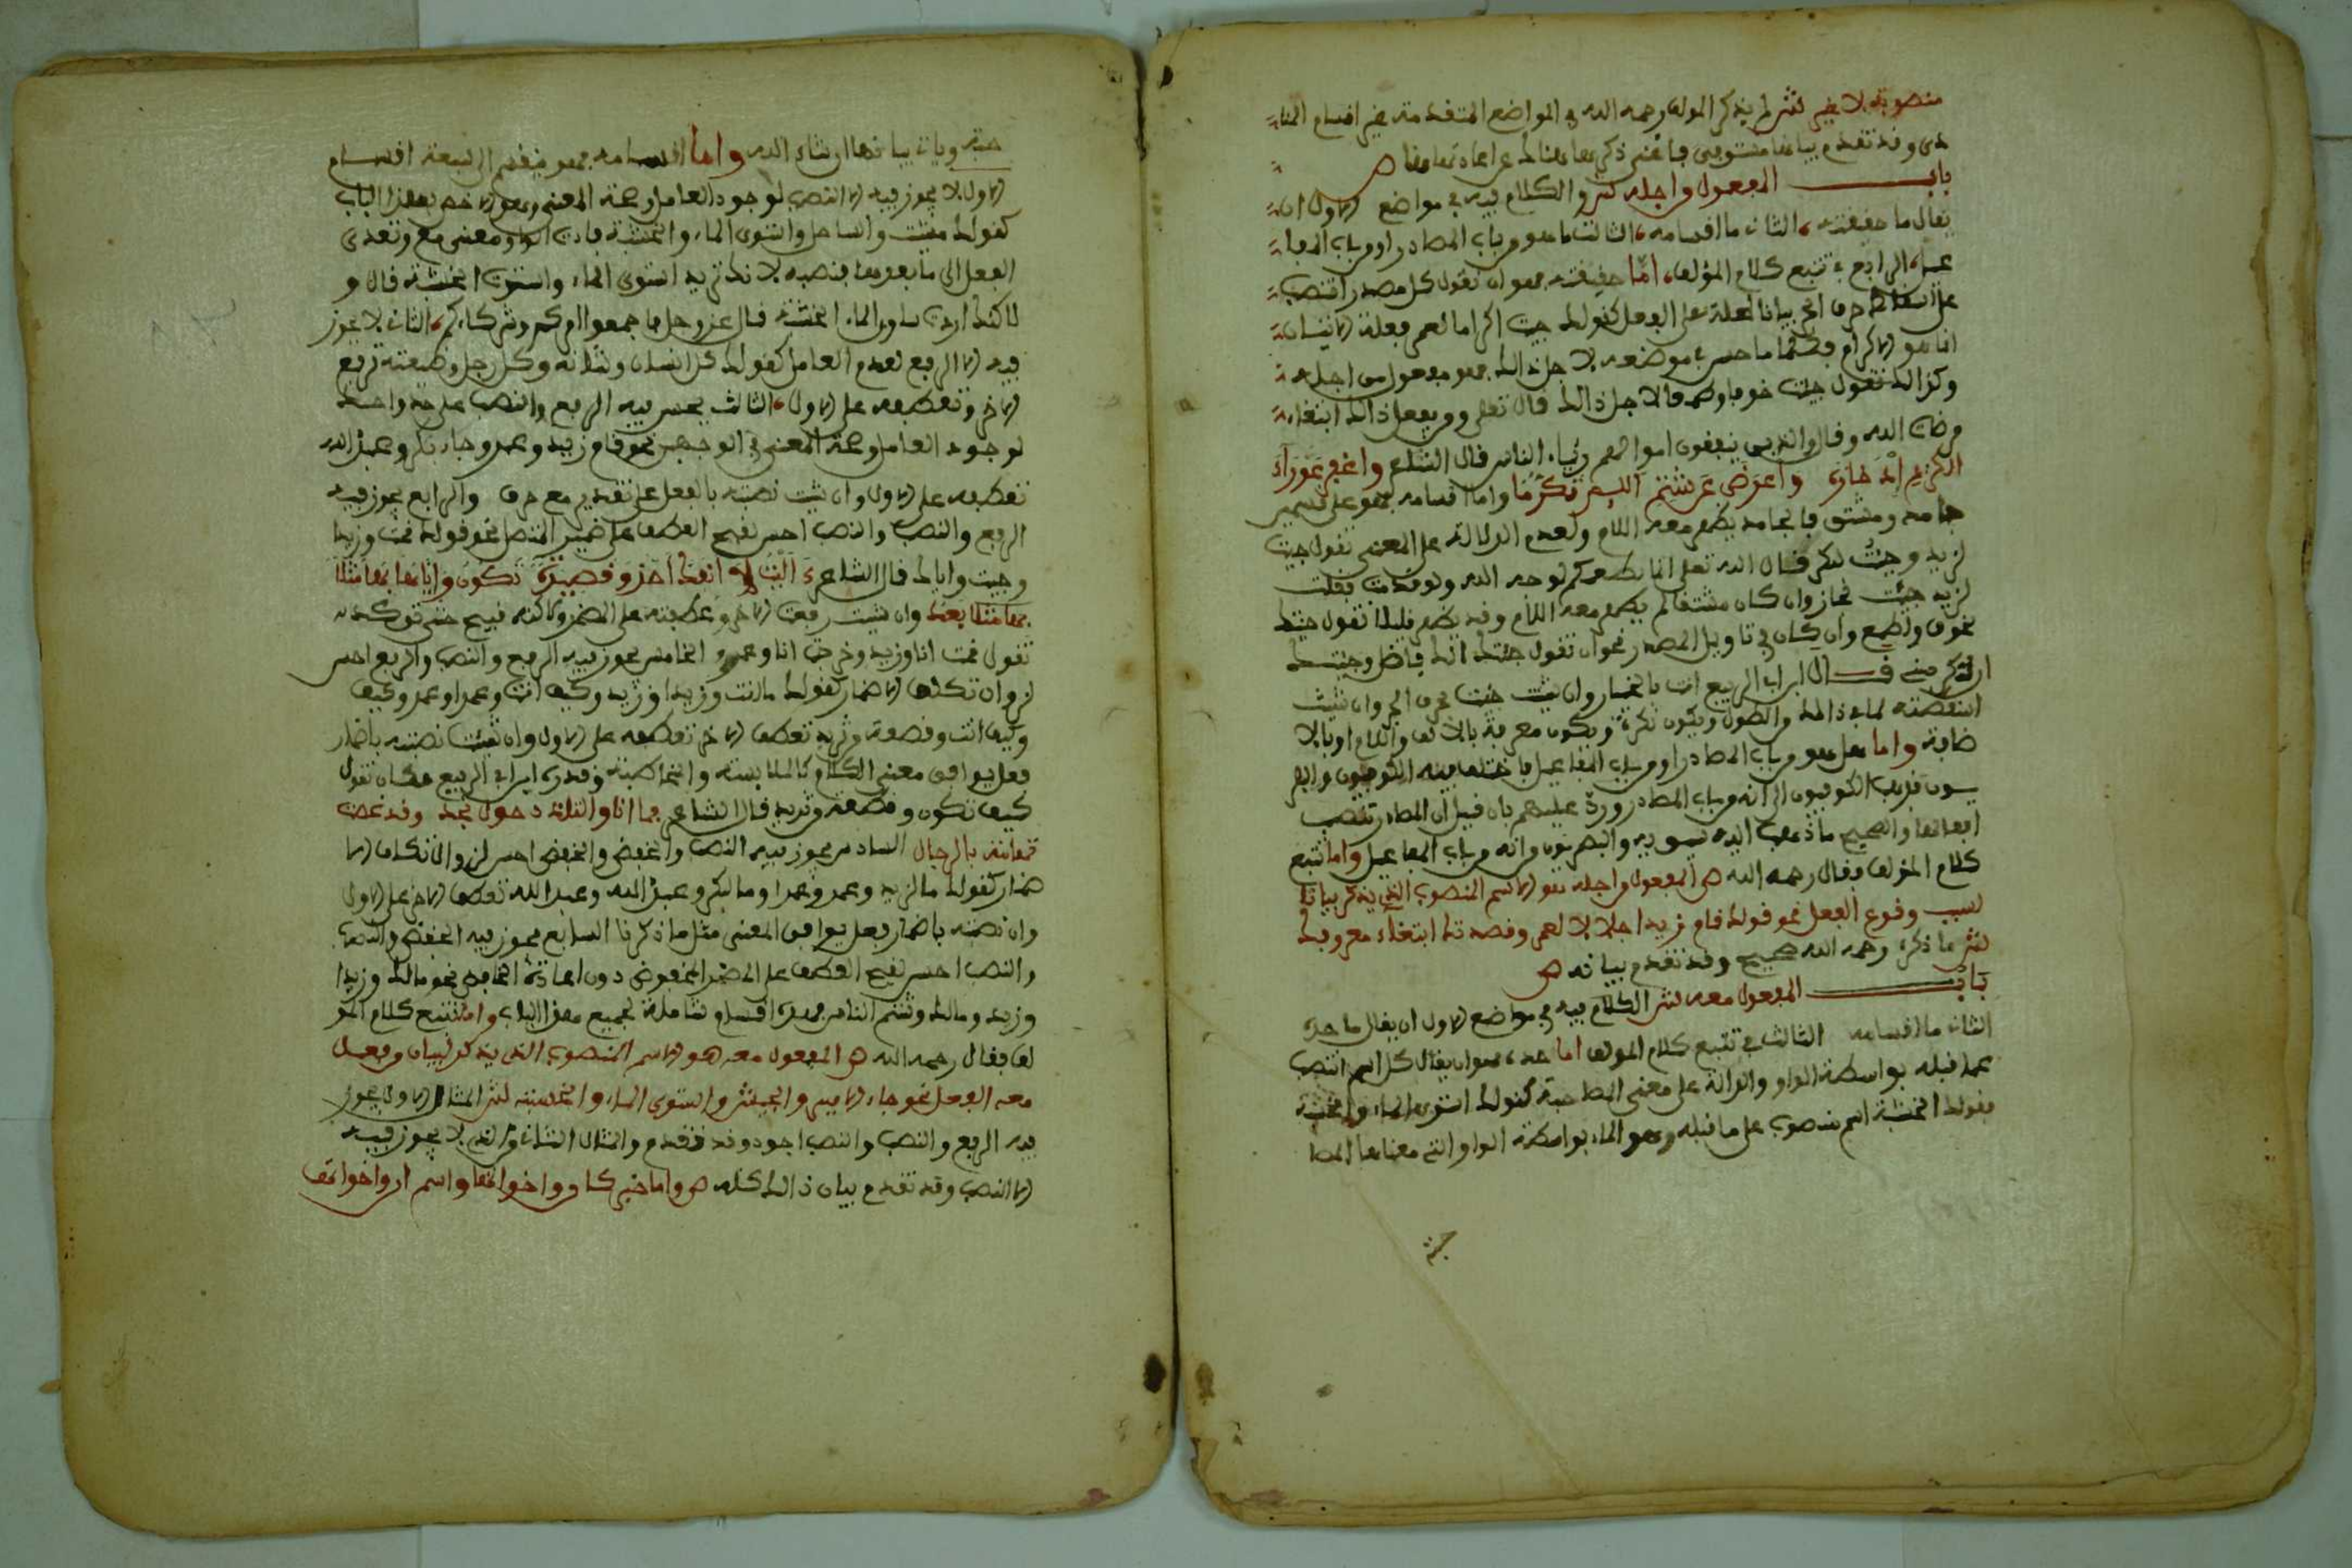 منصوبة لا غير لش لم يذكر المولف رحمه الله في المواضع المتقدمة غير اقسام المنا
دى وقد تقدم بيانها مستوفى فاغنى ذكرها هناك عن اعادتها هنا
باب المفعول من اجله لش والكلام فيه في مواضع الاول ان
يقال ما حقيقته الثاني ما اقسامه الثالث ما هو من باب المصادر او من باب المفا
عيل الرابع في تتبع كلام المؤلف اما حقيقته فهو ان تقول كل مصدر انتصب
على اسقاط حرف الجر بيانا لعلة الفعل كقولك جيت اكراما لعمر فعلة الاتيان
انما هو الاكرام فكلما حسن في موضعه لاجل ذالك فهو مفعول من اجله
وكذالك تقول جيت خوفا وطمعا لاجل ذالك قال تعلى ومن يفعل ذالك ابتغاء
مرضات الله وقال والذين ينفقون اموالهم رئاء الناس قال الشاعر واغفر عوراء
الكريم ادخاره واعرض عن شتم اللئيم تكرما واما اقسامه فهو على قسمين
جامد ومشتق فالجامد يظهر معه اللام ولعدم الدلالة على المعنى تقول جيت
لزيد وجيت لبكر قال الله تعلى انما نطعمكم لوجه الله ولو قدمت فقلت
لزيد جيت لجاز وان كان مشتقا لم يظهر معه اللام وقد يظهر قليلا تقول جيتك
لخوف ولطمع وان كان في تاويل المصدر نحو ان تقول جيتك انك فاضل وجيتك
ان تكرمني قال ابن ابي الربيع انت بالخيار ان شيت جيت بحرف الجر وان شيت
اسقطته لما في ذالك من الطول ويكون نكرة ويكون معرفة بالالف واللام او بالا
ضافة واما هل هو من باب المصادر او من باب المفاعيل فاختلف فيه الكوفيون والبصر
يون فذهب الكوفيون الى انه من باب المصادر ورد عليهم بان قيل ان المصادر تنتصب
افعالها والصحيح ما ذهب اليه سيبويه والبصريون من انه من باب المفاعيل واما تتبع
كلام المؤلف فقال رحمه الله ص المفعول من اجله هو الاسم المنصوب الذي يذكر بيانا
لسبب وقوع الفعل نحو قولك قام زيد اجلالا لعمر وقصدتك ابتغاء معروفك
لش ما ذكره رحمه الله صحيح وقد تقدم بيانه ص
باب المفعول معه لش الكلام فيه في مواضع الاول ان يقال ما حده
الثاني ما اقسامه الثالث في تتبع كلام المولف اما حده فهو ان يقال كل اسم انتصب
عما قبله بواسطة الواو والدالة على معنى المصاحبة كقولك استوى الماء والخشبة
فقولك الخشبة اسم منصوب على ما قبله وهو الماء بواسطة الواو التي معناها المصا
حبة وياتي بيانها ان شاء الله واما اقسامه فهو ينقسم الى سبعة اقسام
الاول لا يجوز فيه الا النصب لوجود العامل وصحة المعنى وهو الاخص بهذا الباب
كقولك مشيت والساحل واستوى الماء والخشبة فادت الواو معنى مع وتعدى
الفعل الى ما بعدها فنصبه لانك لا تريد استوى الماء واستوت الخشبة قال و
لاكنك اردت ساوى الماء الخشبة قال عز وجل فاجمعوا امركم وشركاءكم الثاني لا يجوز
فيه الا الرفع لعدم العامل كقولك كل انسان وشانه وكل رجل وضيعته ترفع
الاخر وتعطفه على الاول الثالث يحسن فيه الرفع والنصب على حد واحد
لوجود العامل وصحة المعنى في الوجهين نحو قام زيد وعمر وجاء بكر وعبد الله
تعطفه على الاول وان شيت نصبته بالفعل على تقدير مع حرف والرابع يجوز فيه
الرفع والنصب والنصب احسن لقبح العطف على ضمير المتصل نحو قولك قمت وزيدا
وجيت واياك قال الشاعر ءاليت لا انفك احذو قصيدة تكون واياها بها مثلا
بها مثلا بعدى وان شيت رفعت الاخر وعطفته على المضمر ولاكنه قبيح حتى توكده
تقول قمت انا وزيد وخرجت انا وعمرو الخامس يجوز فيه الرفع والنصب والرفع احسن
لزوان تكلف الاضمار كقولك ما انت وزيدا وزيد وكيف انت وعمرا وعمرو كيف
وكيف انت وقصعة وثريد تعطف الاخر تعطفه على الاول وان شيت نصبته باضمار
فعل يوافق معنى الكلام كالملابسة والمخاصمة وقدره ابن ابي الربيع بكان تقول
كيف تكون وقصعة وثريد قال الشاعر فما انا والتلدد حول نجد وقد غصت
تهامة بالرجال السادس يجوز فيه النصب والخفض والخفض احسن لزوال تكلف الا
ضمار كقولك ما لزيد وعمرو وعمرا وما لبكر وعبد الله وعبد الله تعطف الاخر على الاول
وان نصبته باضمار فعل يوافق المعنى مثل ما ذكرنا السابع يجوز فيه الخفض والنصب
والنصب احسن لقبح العطف على المضمر المخفوض دون اعادة الخافض نحو مالك وزيدا
وزيد ومالك وشتم الناس فهذه اقسام شاملة لجميع هذا الباب واما تتبع كلام المو
لف فقال رحمه الله ص المفعول معه هو الاسم المنصوب الذي يذكر لبيان من فعل
معه الفعل نحو جاء الامير والجيش واستوى الماء والخشبة لش المثال الاول يجوز
فيه الرفع والنصب والنصب اجود وقد تقدم والمثال الثاني والذي لا يجوز فيه
الا النصب وقد تقدم بيان ذالك كله ص واما خبر كان واخواتها واسم ان واخواتها